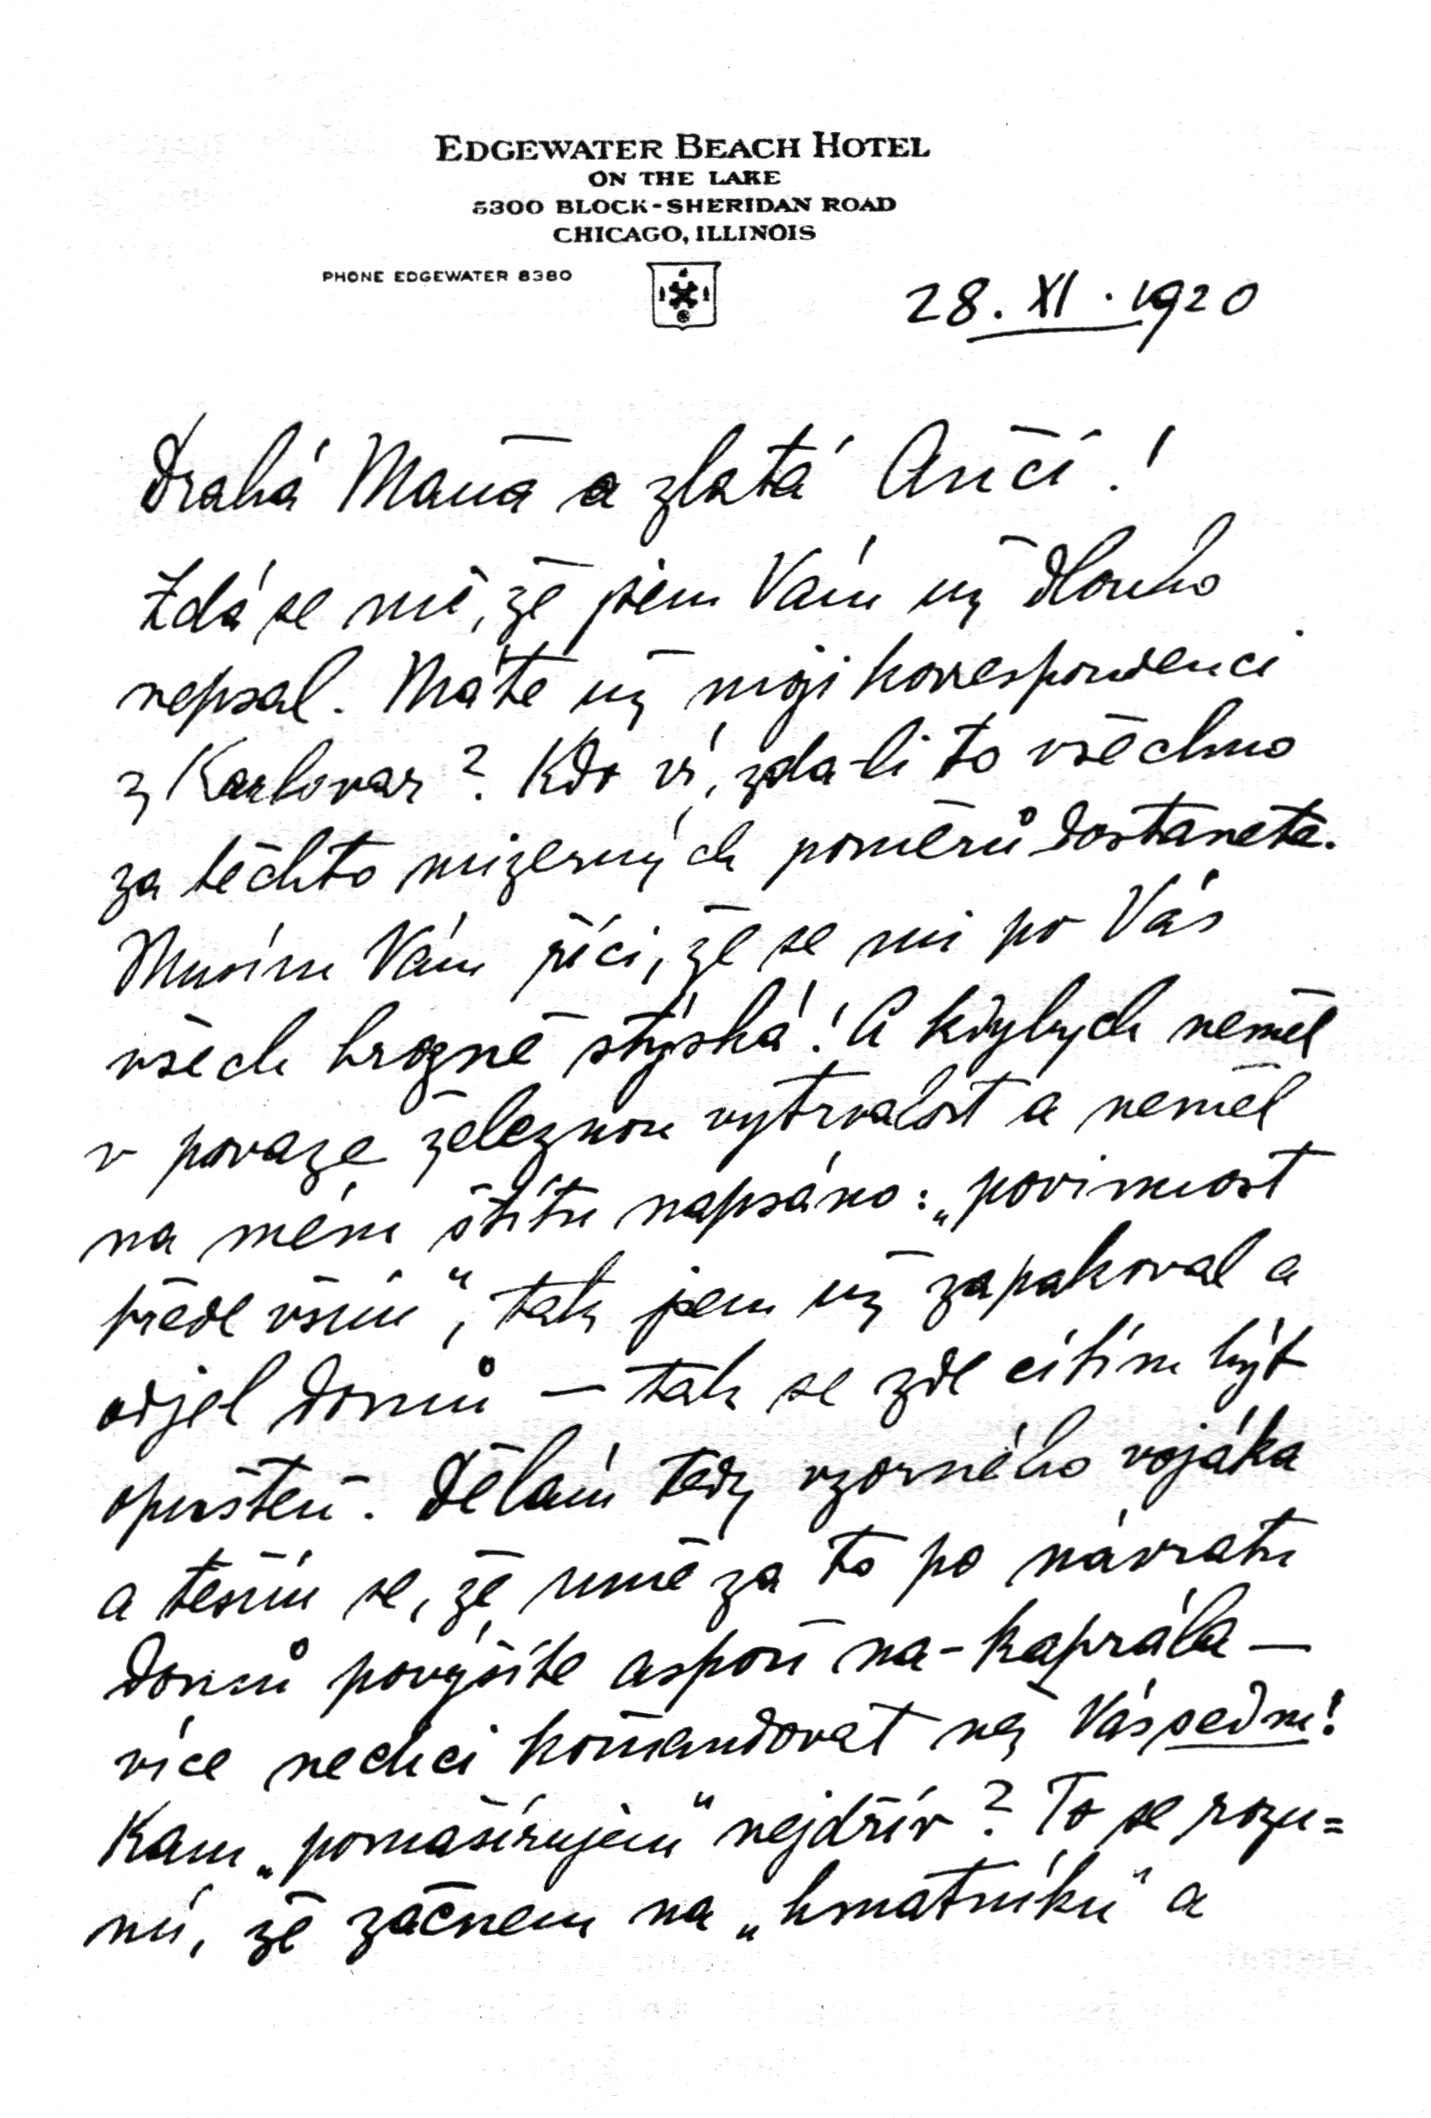 EDGEWATER BEACH HOTEL
ON THE LAKE
5300 BLOCK-SHERIDAN ROAD
CHICAGO, ILLINOIS
PHONE EDGEWATER 8380
28. XI. 1920
Drahá Máňa a zlatá Anči!
Zdá se mě, že jsem Vám už dlouho
nepsal. Máte už moji korrespondenci
z Karlovar? Kdo ví, zda-li to všechno
za těchto mizerných poměrů dostanete.
Musím Vám říci, že se mi po Vás
všech hrozně stýská! A kdybych neměl
v povaze železnou vytrvalost a neměl
na mém štítu napsáno: „povinnost
přede vším“, tak jsem už zapakoval a
odjel domů — tak se zde cítím být
opuštěn. Dělám tedy vzorného vojáka
a těším se, že mně za to po návratu
domů povýšíte aspoň na-kaprála —
více nechci komandovat než Vás sedm!
Kam „pomašírujem“ nejdřív? To se rozu=
mí, že začnem na „hmatníku“ a